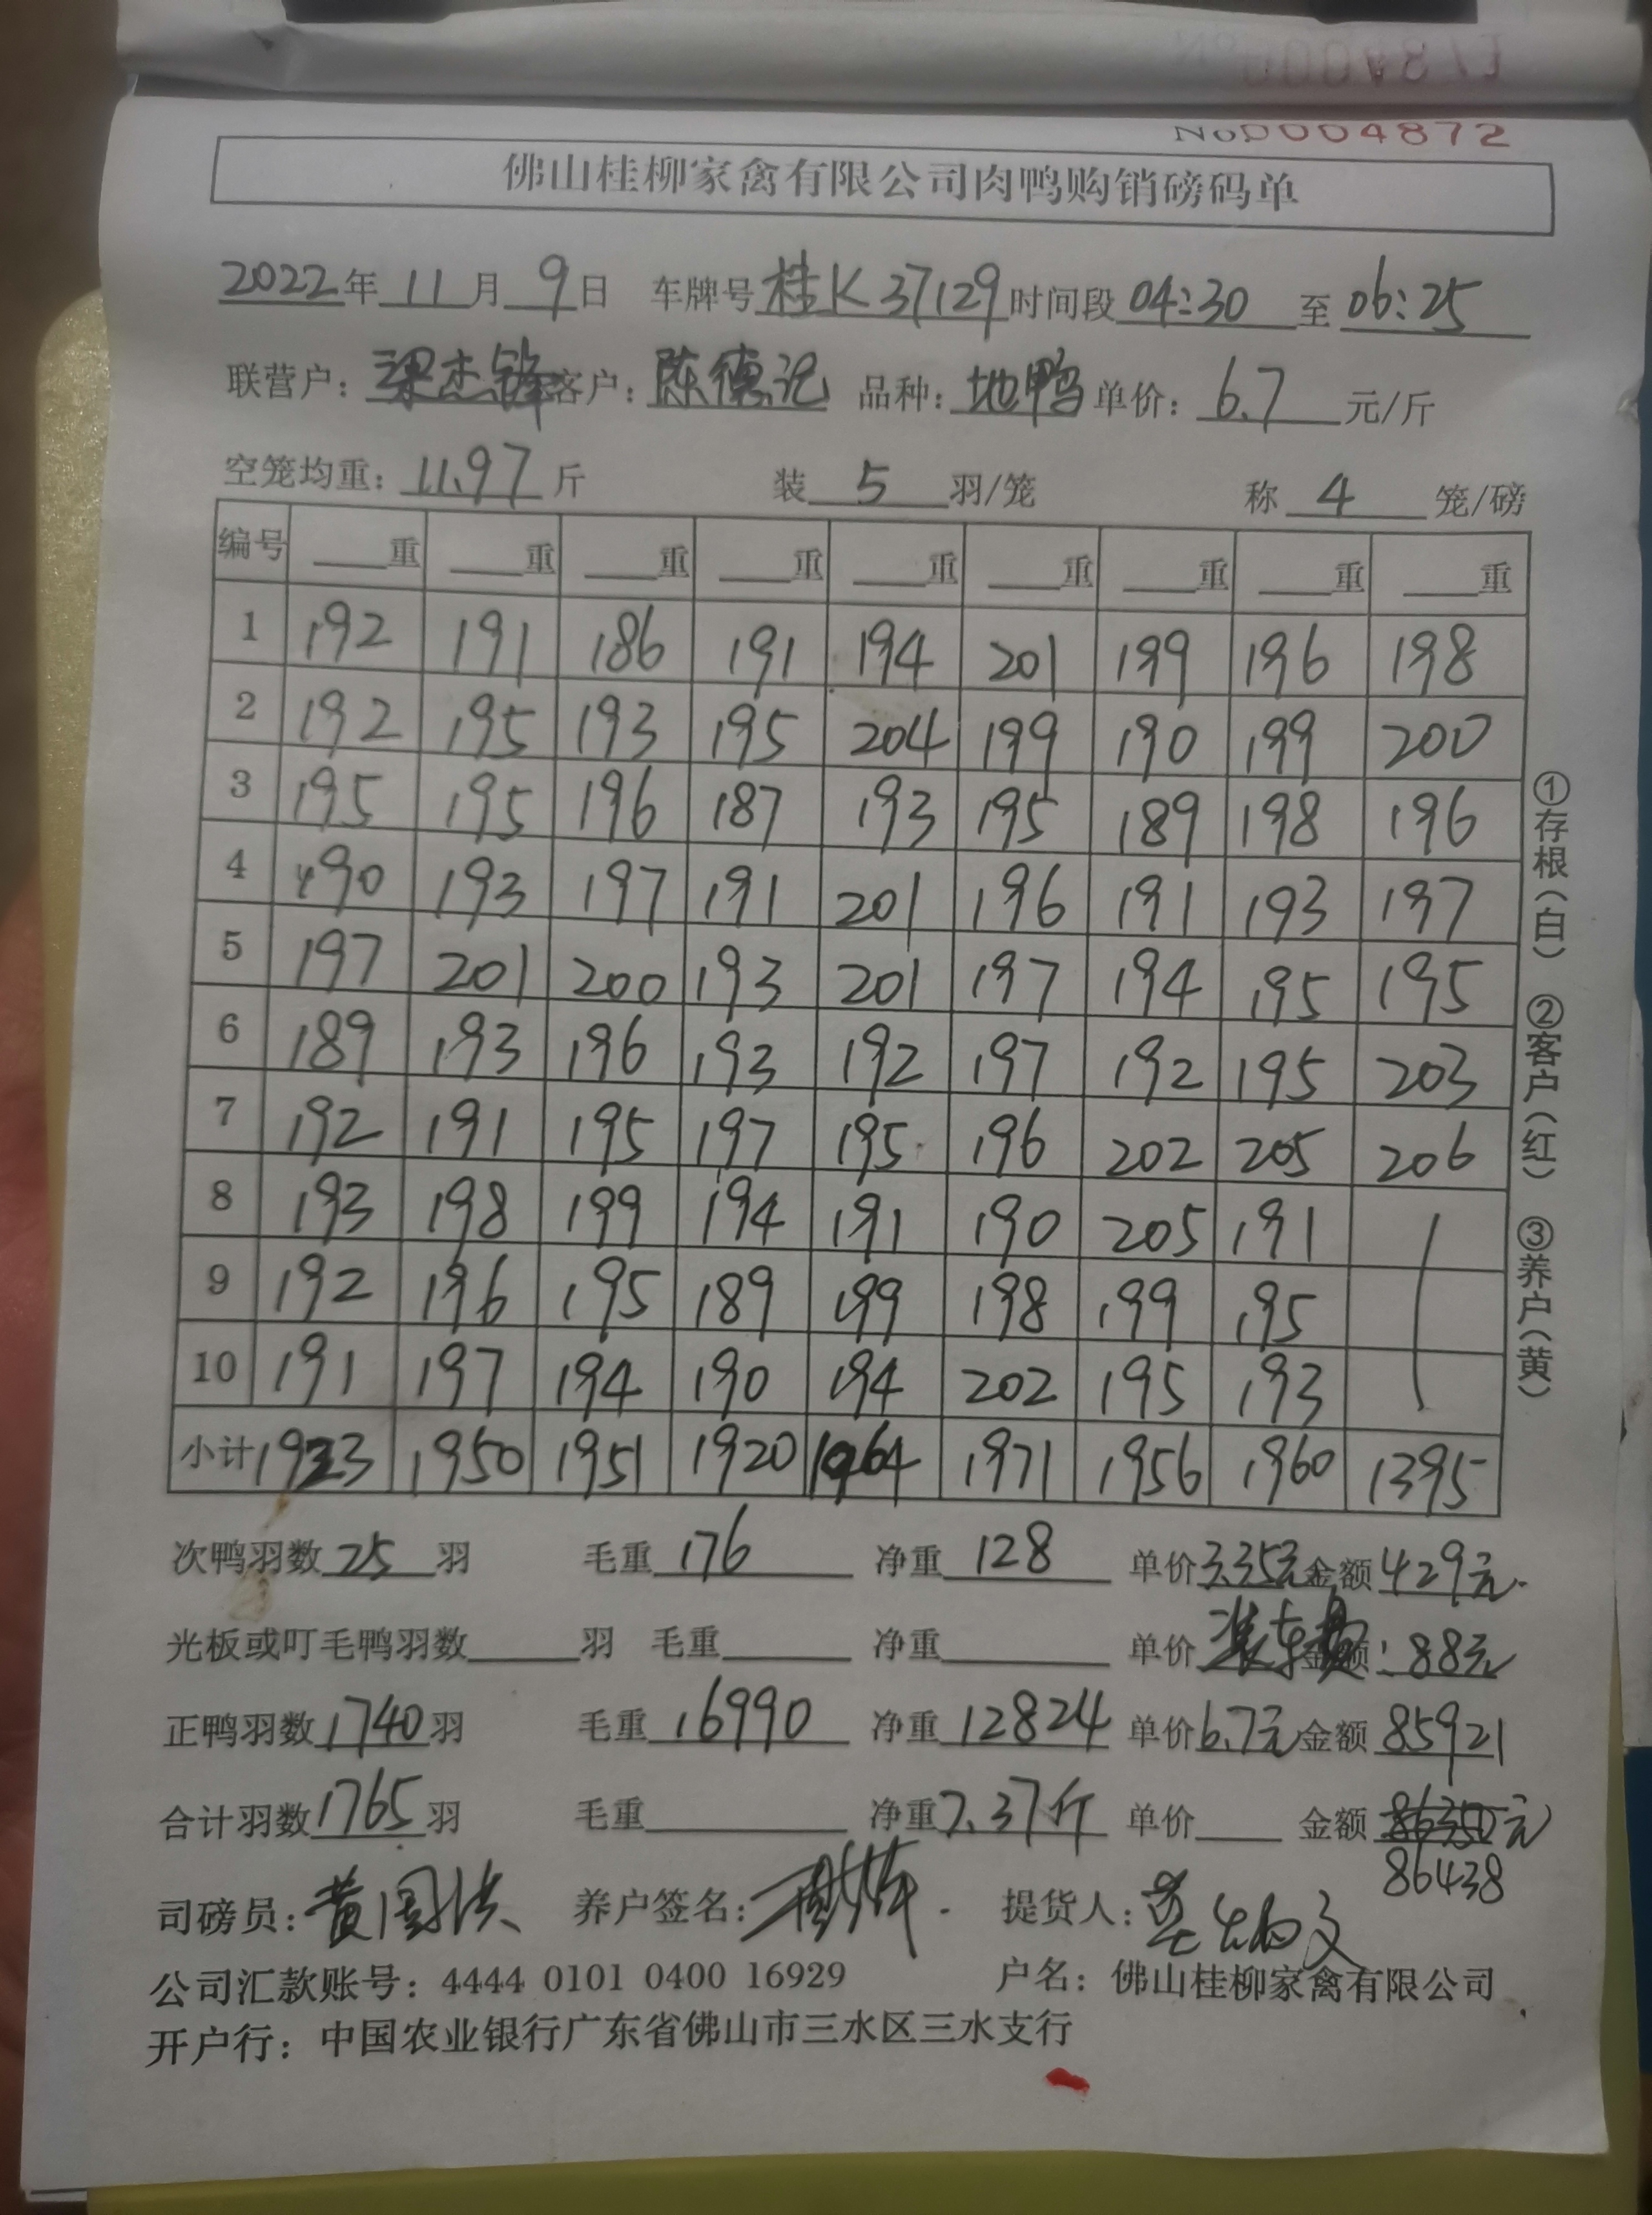 No 0004872
佛山桂柳家禽有限公司肉鸭购销磅码单
2022年 11 月 9 日 车牌号 桂K37129 时间段 04:30 至 06:25
联营户： 梁杰锋 客户： 陈德记 品种： 地鸭 单价： 6.7 元/斤
空笼均重： 11.97 斤 装 5 羽/笼 称 4 笼/磅
编号 重 重 重 重 重 重 重 重 重
1 192 191 186 191 194 201 199 196 198
2 192 195 193 195 204 199 190 199 200
3 195 195 196 187 193 195 189 198 196
4 190 193 197 191 201 196 191 193 197
5 197 201 200 193 201 197 194 195 195
6 189 193 196 193 192 197 192 195 203
7 192 191 195 197 195 196 202 205 206
8 193 198 199 194 191 190 205 191
9 192 196 195 189 199 198 199 195
10 191 197 194 190 194 202 195 193
小计 1923 1950 1951 1920 1964 1971 1956 1960 1395
①存根（白） ②客户（红） ③养户（黄）
次鸭羽数 25 羽 毛重 176 净重 128 单价 3.35元 金额 429元.
光板或叮毛鸭羽数 羽 毛重 净重 单价 装车费 金额: 88元
正鸭羽数 1740 羽 毛重 16990 净重 12824 单价 6.7元 金额 85921
合计羽数 1765 羽 毛重 净重 7.37斤 单价 金额 86350元
86438
司磅员： 黄国洪 养户签名： 提货人：
公司汇款账号：4444 0101 0400 16929 户名：佛山桂柳家禽有限公司
开户行：中国农业银行广东省佛山市三水区三水支行